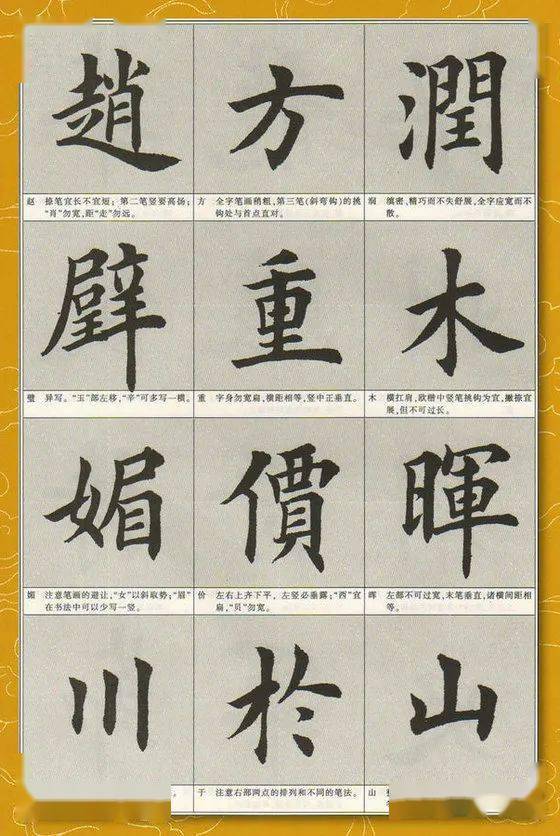 趙 方 潤
赵 捺笔宜长不宜短；第二笔竖要高扬；
“肖”勿宽，距“走”勿远。
方 全字笔画稍粗，第三笔（斜弯钩）的挑
钩处与首点直对。
润 缜密，精巧而不失舒展，全字应宽而不
散。
璧 重 木
璧 异写。“玉”部左移，“辛”可多写一横。
重 字身勿宽扁，横距相等，竖中正垂直。
木 横扛肩，欧楷中竖笔挑钩为宜，撇捺宜
展，但不可过长。
媚 價 暉
媚 注意笔画的避让，“女”以斜取势；“眉”
在书法中可以少写一竖。
价 左右上齐下平，左竖必垂露；“西”宜
扁，“贝”勿宽。
晖 左部不可过宽，末笔垂直，诸横间距相
等。
川 於 山
于 注意右部两点的排列和不同的笔法。
山